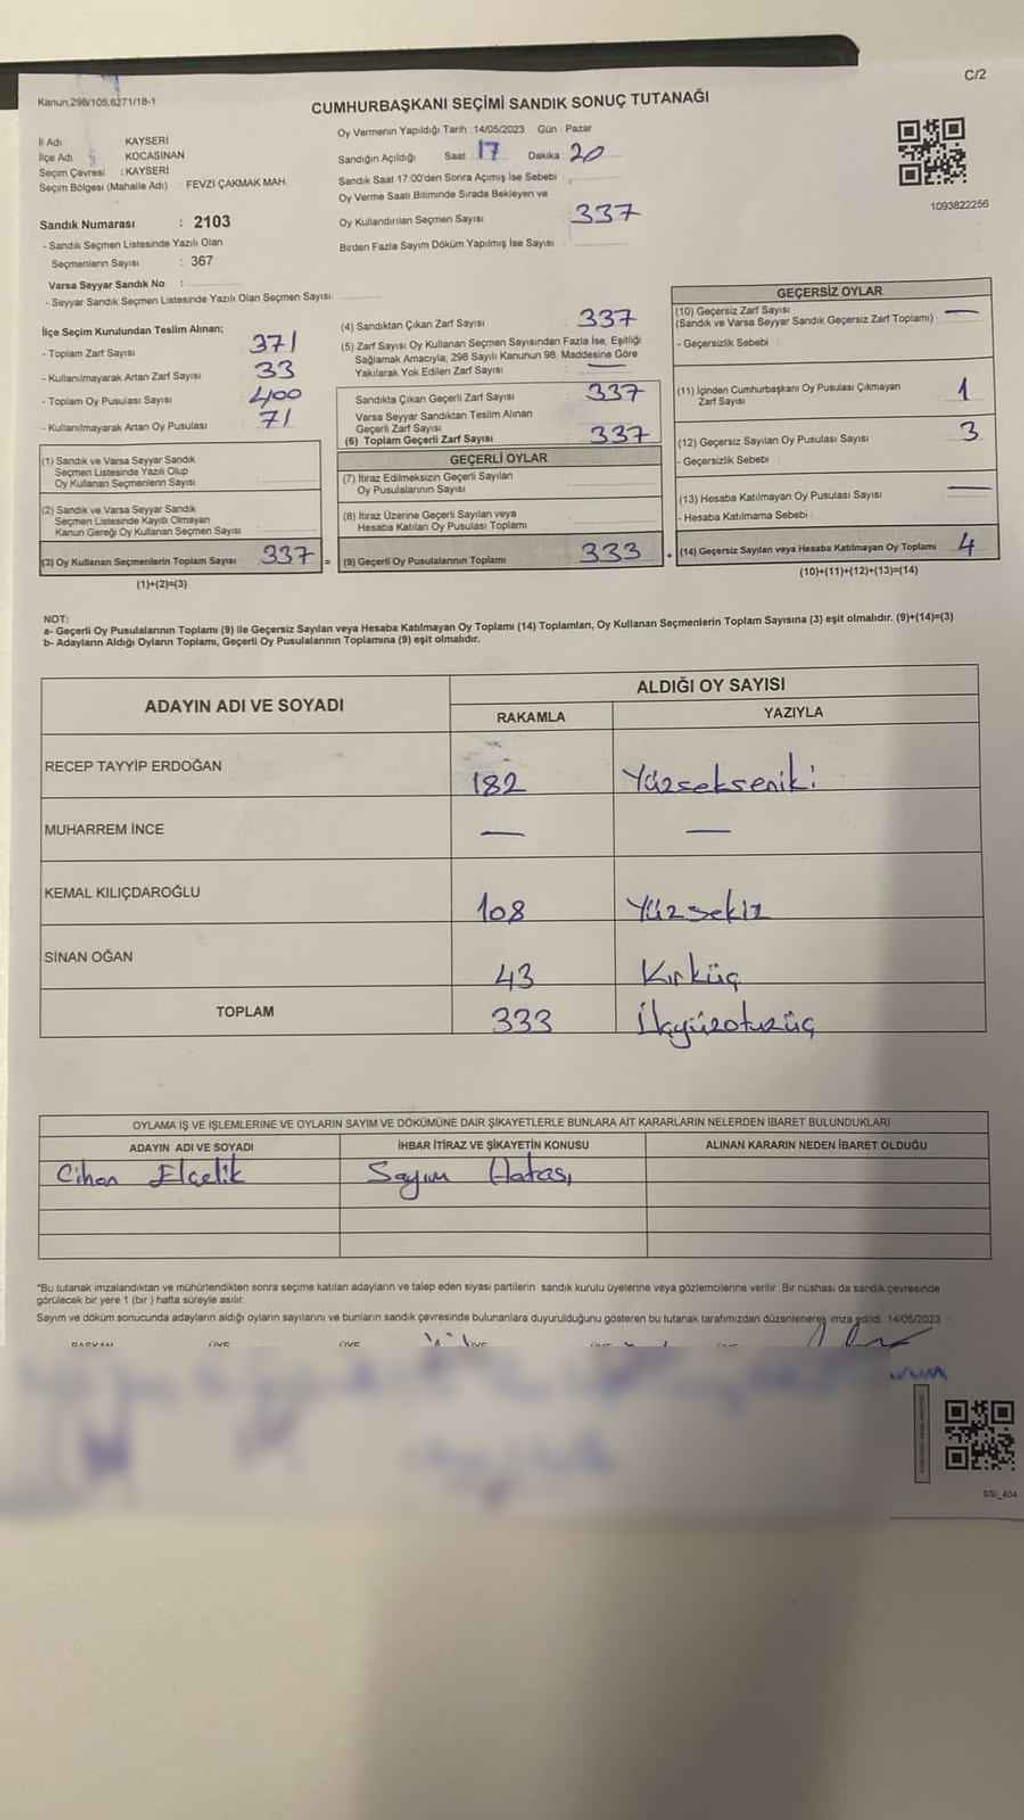 C/2
Kanun,298/105,6271/18-1
CUMHURBAŞKANI SEÇİMİ SANDIK SONUÇ TUTANAĞI
İl Adı KAYSERİ
İlçe Adı KOCASİNAN
Seçim Çevresi : KAYSERİ
Seçim Bölgesi (Mahalle Adı) FEVZİ ÇAKMAK MAH.
Oy Vermenin Yapıldığı Tarih :14/05/2023 Gün : Pazar
Sandığın Açıldığı Saat 17 Dakika 20
Sandık Saat 17:00'den Sonra Açımış İse Sebebi
Oy Verme Saati Bitiminde Sırada Bekleyen ve
Oy Kullandırılan Seçmen Sayısı 337
Birden Fazla Sayım Döküm Yapılmış İse Sayısı
1093822256
Sandık Numarası : 2103
- Sandık Seçmen Listesinde Yazılı Olan
Seçmenlerin Sayısı : 367
Varsa Seyyar Sandık No :
- Seyyar Sandık Seçmen Listesinde Yazılı Olan Seçmen Sayısı
İlçe Seçim Kurulundan Teslim Alınan;
- Toplam Zarf Sayısı 371
- Kullanılmayarak Artan Zarf Sayısı 33
- Toplam Oy Pusulası Sayısı 400
- Kullanılmayarak Artan Oy Pusulası 71
(1) Sandık ve Varsa Seyyar Sandık
Seçmen Listesinde Yazılı Olup
Oy Kullanan Seçmenlerin Sayısı
(2) Sandık ve Varsa Seyyar Sandık
Seçmen Listesinde Kayıtlı Olmayan
Kanun Gereği Oy Kullanan Seçmen Sayısı
(3) Oy Kullanan Seçmenlerin Toplam Sayısı 337 =
(1)+(2)=(3)
(4) Sandıktan Çıkan Zarf Sayısı 337
(5) Zarf Sayısı Oy Kullanan Seçmen Sayısından Fazla İse, Eşitliği
Sağlamak Amacıyla, 298 Sayılı Kanunun 98. Maddesine Göre
Yakılarak Yok Edilen Zarf Sayısı —
Sandıkta Çıkan Geçerli Zarf Sayısı 337
Varsa Seyyar Sandıktan Teslim Alınan
Geçerli Zarf Sayısı
(6) Toplam Geçerli Zarf Sayısı 337
GEÇERLİ OYLAR
(7) İtiraz Edilmeksizin Geçerli Sayılan
Oy Pusulalarının Sayısı
(8) İtiraz Üzerine Geçerli Sayılan veya
Hesaba Katılan Oy Pusulası Toplamı
(9) Geçerli Oy Pusulalarının Toplamı 333
GEÇERSİZ OYLAR
(10) Geçersiz Zarf Sayısı —
(Sandık ve Varsa Seyyar Sandık Geçersiz Zarf Toplamı)
- Geçersizlik Sebebi :
(11) İçinden Cumhurbaşkanı Oy Pusulası Çıkmayan
Zarf Sayısı 1
(12) Geçersiz Sayılan Oy Pusulası Sayısı 3
- Geçersizlik Sebebi
(13) Hesaba Katılmayan Oy Pusulası Sayısı —
- Hesaba Katılmama Sebebi
(14) Geçersiz Sayılan veya Hesaba Katılmayan Oy Toplamı 4
(10)+(11)+(12)+(13)=(14)
NOT:
a- Geçerli Oy Pusulalarının Toplamı (9) ile Geçersiz Sayılan veya Hesaba Katılmayan Oy Toplamı (14) Toplamları, Oy Kullanan Seçmenlerin Toplam Sayısına (3) eşit olmalıdır. (9)+(14)=(3)
b- Adayların Aldığı Oyların Toplamı, Geçerli Oy Pusulalarının Toplamına (9) eşit olmalıdır.
ADAYIN ADI VE SOYADI ALDIĞI OY SAYISI
RAKAMLA YAZIYLA
RECEP TAYYİP ERDOĞAN 182 Yüzsekseniki
MUHARREM İNCE — —
KEMAL KILIÇDAROĞLU 108 Yüzsekiz
SİNAN OĞAN 43 Kırküç
TOPLAM 333 Üçyüzotuzüç
OYLAMA İŞ VE İŞLEMLERİNE VE OYLARIN SAYIM VE DÖKÜMÜNE DAİR ŞİKAYETLERLE BUNLARA AİT KARARLARIN NELERDEN İBARET BULUNDUKLARI
ADAYIN ADI VE SOYADI İHBAR İTİRAZ VE ŞİKAYETİN KONUSU ALINAN KARARIN NEDEN İBARET OLDUĞU
Cihan Elçelik Sayım Hatası
*Bu tutanak imzalandıktan ve mühürlendikten sonra seçime katılan adayların ve talep eden siyasi partilerin sandık kurulu üyelerine veya gözlemcilerine verilir. Bir nüshası da sandık çevresinde
görülecek bir yere 1 (bir ) hafta süreyle asılır.
Sayım ve döküm sonucunda adayların aldığı oyların sayılarını ve bunların sandık çevresinde bulunanlara duyurulduğunu gösteren bu tutanak tarafımızdan düzenlenerek imza edildi. 14/05/2023